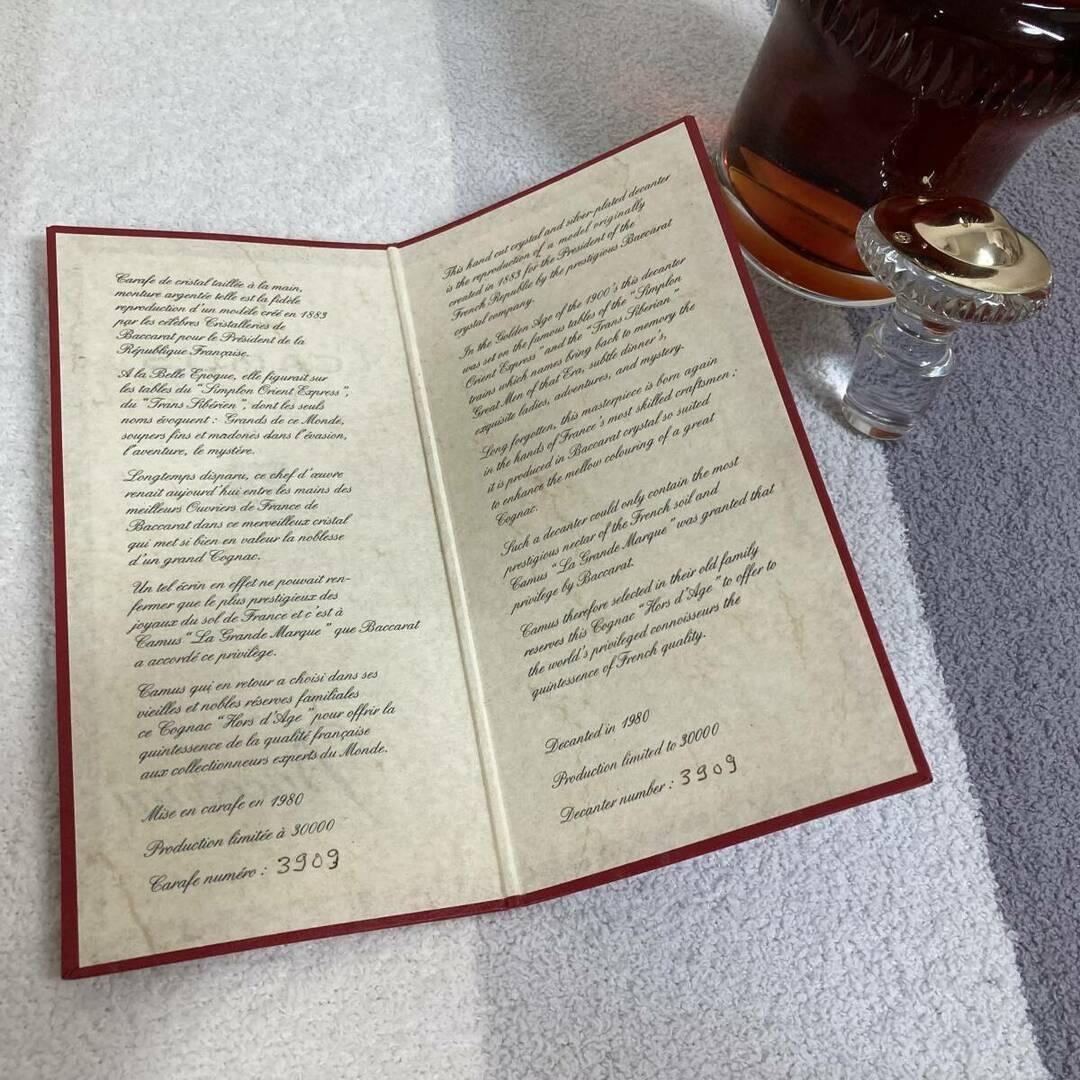 Carafe de cristal taillée à la main,
monture argentée telle est la fidèle
reproduction d'un modèle créé en 1883
par les célèbres Cristalleries de
Baccarat pour le Président de la
République Française.
A la Belle Epoque, elle figurait sur
les tables du "Simplon Orient Express",
du "Trans Sibérien", dont les seuls
noms évoquent : Grands de ce Monde,
soupers fins et madones dans l'évasion,
l'aventure, le mystère.
Longtemps disparu, ce chef d'œuvre
renait aujourd'hui entre les mains des
meilleurs Ouvriers de France de
Baccarat dans ce merveilleux cristal
qui met si bien en valeur la noblesse
d'un grand Cognac.
Un tel écrin en effet ne pouvait ren-
fermer que le plus prestigieux des
joyaux du sol de France et c'est à
Camus "La Grande Marque" que Baccarat
a accordé ce privilège.
Camus qui en retour a choisi dans ses
vieilles et nobles réserves familiales
ce Cognac "Hors d'Age" pour offrir la
quintessence de la qualité française
aux collectionneurs experts du Monde.
Mise en carafe en 1980
Production limitée à 30000
Carafe numéro : 3909
This hand cut crystal and silver-plated decanter
is the reproduction of a model originally
created in 1883 for the President of the
French Republic by the prestigious Baccarat
crystal company.
In the Golden Age of the 1900's this decanter
was set on the famous tables of the "Simplon
Orient Express" and the "Trans-Siberian"
trains which names bring back to memory the
Great Men of that Era, subtle dinner's,
exquisite ladies, adventures, and mystery.
Long forgotten, this masterpiece is born again
in the hands of France's most skilled craftsmen ;
it is produced in Baccarat crystal so suited
to enhance the mellow colouring of a great
Cognac.
Such a decanter could only contain the most
prestigious nectar of the French soil and
Camus "La Grande Marque" was granted that
privilege by Baccarat.
Camus therefore selected in their old family
reserves this Cognac "Hors d'Age" to offer to
the world's privileged connoisseurs the
quintessence of French quality.
Decanted in 1980
Production limited to 30000
Decanter number : 3909